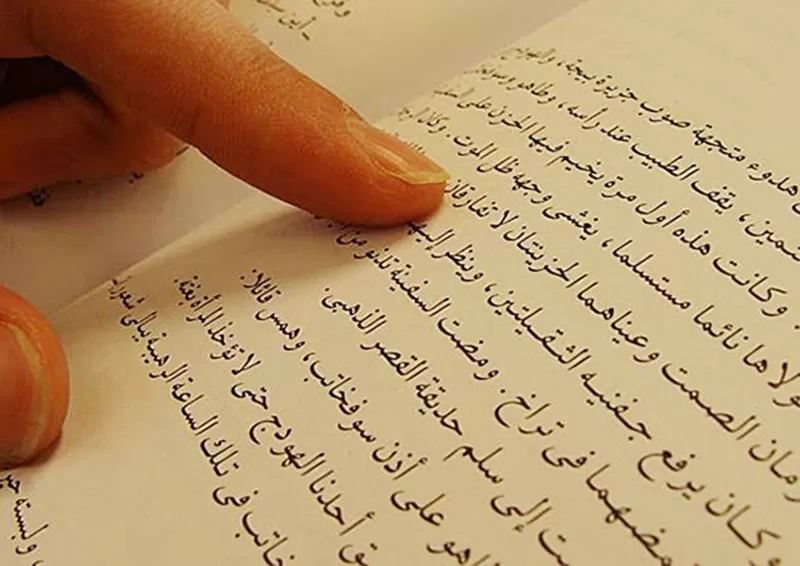 هدوء متجهة صوب جزيرة بيجة،
يقف الطبيب عند رأسه، وطاهو
وكانت هذه أول مرة يخيم فيها الحزن على
نائما مستسلما، يغشى وجهه ظل الموت. وكان
الصمت وعيناهما الحزينتان لا تفارقان
وكان يرفع جفنيه الثقيلتين، وينظر
فى تراخ. ومضت السفينة تدنو من
إلى سلم حديقة القصر الذهبى.
على أذن سوفخاتب، وهمس قائلا:
أحدنا الهودج حتى لا تؤخذ المرأة بغتة.
فى تلك الساعة الرهيبة يبالى
ولبسته